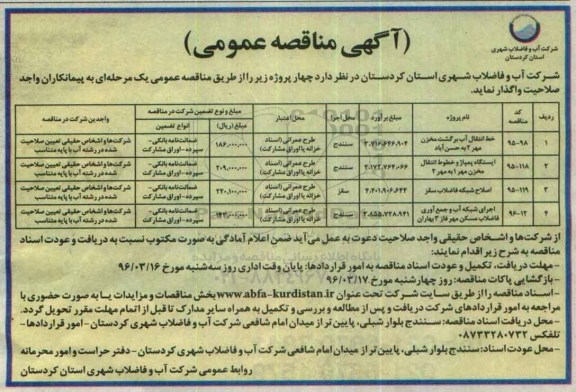 شرکت آب و فاضلاب شهری
استان کردستان
(آگهی مناقصه عمومی)
شرکت آب و فاضلاب شهری استان کردستان در نظر دارد چهار پروژه زیر را از طریق مناقصه عمومی یک مرحله‌ای به پیمانکاران واجد
صلاحیت واگذار نماید.
ردیف کد مناقصه نام پروژه مبلغ برآورد محل اجرا محل اعتبار مبلغ و نوع تضمین شرکت در مناقصه واجدین شرکت در مناقصه
مبلغ (ریال) انواع تضمین
۱ ۹۵-۹۸ خط انتقال آب برگشت مخزن مهر ۲ به حسن آباد سنندج طرح عمرانی (اسناد خزانه یا اوراق مشارکت) ۱۸۶,۰۰۰,۰۰۰ ضمانتنامه بانکی - سپرده - اوراق مشارکت شرکت‌ها و اشخاص حقیقی تعیین صلاحیت شده در رشته آب با پایه متناسب
۲ ۹۵-۱۱۸ ایستگاه پمپاژ و خطوط انتقال مخزن مهر ۱ به مهر ۲ سنندج طرح عمرانی (اسناد خزانه یا اوراق مشارکت) ۲۰۹,۰۰۰,۰۰۰ ضمانتنامه بانکی - سپرده - اوراق مشارکت شرکت‌ها و اشخاص حقیقی تعیین صلاحیت شده در رشته آب با پایه متناسب
۳ ۹۵-۱۱۹ اصلاح شبکه فاضلاب سقز ۴,۴۰۱,۹۰۶,۶۴۴ سقز طرح عمرانی (اسناد خزانه یا اوراق مشارکت) ۲۲۰,۱۰۰,۰۰۰ ضمانتنامه بانکی - سپرده - اوراق مشارکت شرکت‌ها و اشخاص حقیقی تعیین صلاحیت شده در رشته آب با پایه متناسب
۴ ۹۶-۱۲ اجرای شبکه آب و جمع آوری فاضلاب مسکن مهر فاز ۳ بهاران ۲,۸۵۵,۷۲۸,۹۴۱ سنندج طرح عمرانی (اسناد خزانه یا اوراق مشارکت) ۱۴۳,۰۰۰,۰۰۰ ضمانتنامه بانکی - سپرده - اوراق مشارکت شرکت‌ها و اشخاص حقیقی تعیین صلاحیت شده در رشته آب با پایه متناسب
از شرکت‌ها و اشخاص حقیقی واجد صلاحیت دعوت به عمل می‌آید ضمن اعلام آمادگی به صورت مکتوب نسبت به دریافت و عودت اسناد
مناقصه به شرح زیر اقدام نمایند:
- مهلت دریافت، تکمیل و عودت اسناد مناقصه به امور قراردادها: پایان وقت اداری روز سه‌شنبه مورخ ۹۶/۰۳/۱۶
- بازگشایی پاکات مناقصه: روز چهارشنبه مورخ ۹۶/۰۳/۱۷
- اسناد مناقصه را از طریق سایت شرکت تحت عنوان www.abfa-kurdistan.ir بخش مناقصات و مزایدات یا به صورت حضوری با
مراجعه به امور قراردادهای شرکت دریافت و پس از مطالعه و بررسی و تکمیل به همراه سایر مدارک تا قبل از اتمام مهلت مقرر تحویل گردد.
- محل دریافت اسناد مناقصه: سنندج بلوار شبلی، پایین‌تر از میدان امام شافعی شرکت آب و فاضلاب شهری کردستان - امور قراردادها -
تلفکس ۰۸۷۳۳۲۸۰۷۳۲
- محل عودت اسناد: سنندج بلوار شبلی، پایین‌تر از میدان امام شافعی شرکت آب و فاضلاب شهری کردستان - دفتر حراست و امور محرمانه
روابط عمومی شرکت آب و فاضلاب شهری کردستان